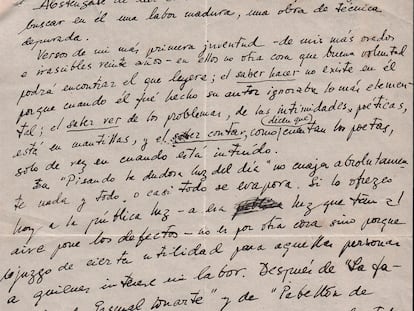 Absténgase de
buscar en él una labor madura, una obra de técnica
depurada.
Versos de mi más primera juventud -de mis más osados
e irascibles veinte años- en ellos no otra cosa que buena voluntad
podrá encontrar el que leyere; el saber hacer no existe en él
porque cuando él fué hecho su autor ignoraba lo más elemen-
tal; el saber ver de los problemas, de las intimidades poéticas,
está en mantillas, y el saber contar, como (dicen que) cuentan los poetas,
solo de vez en cuando está intuido.
En "Pisando la dudosa luz del día" no cuaja absolutamen-
te nada y todo o casi todo se evapora. Si lo ofrezco
hoy a la pública luz -a esa luz que tan al
aire pone los defectos- no es por otra cosa sino porque
lo juzgo de cierta utilidad para aquellas personas
a quienes interese mi labor. Después de "La fa-
Pascual Duarte" y de "Pabellón de